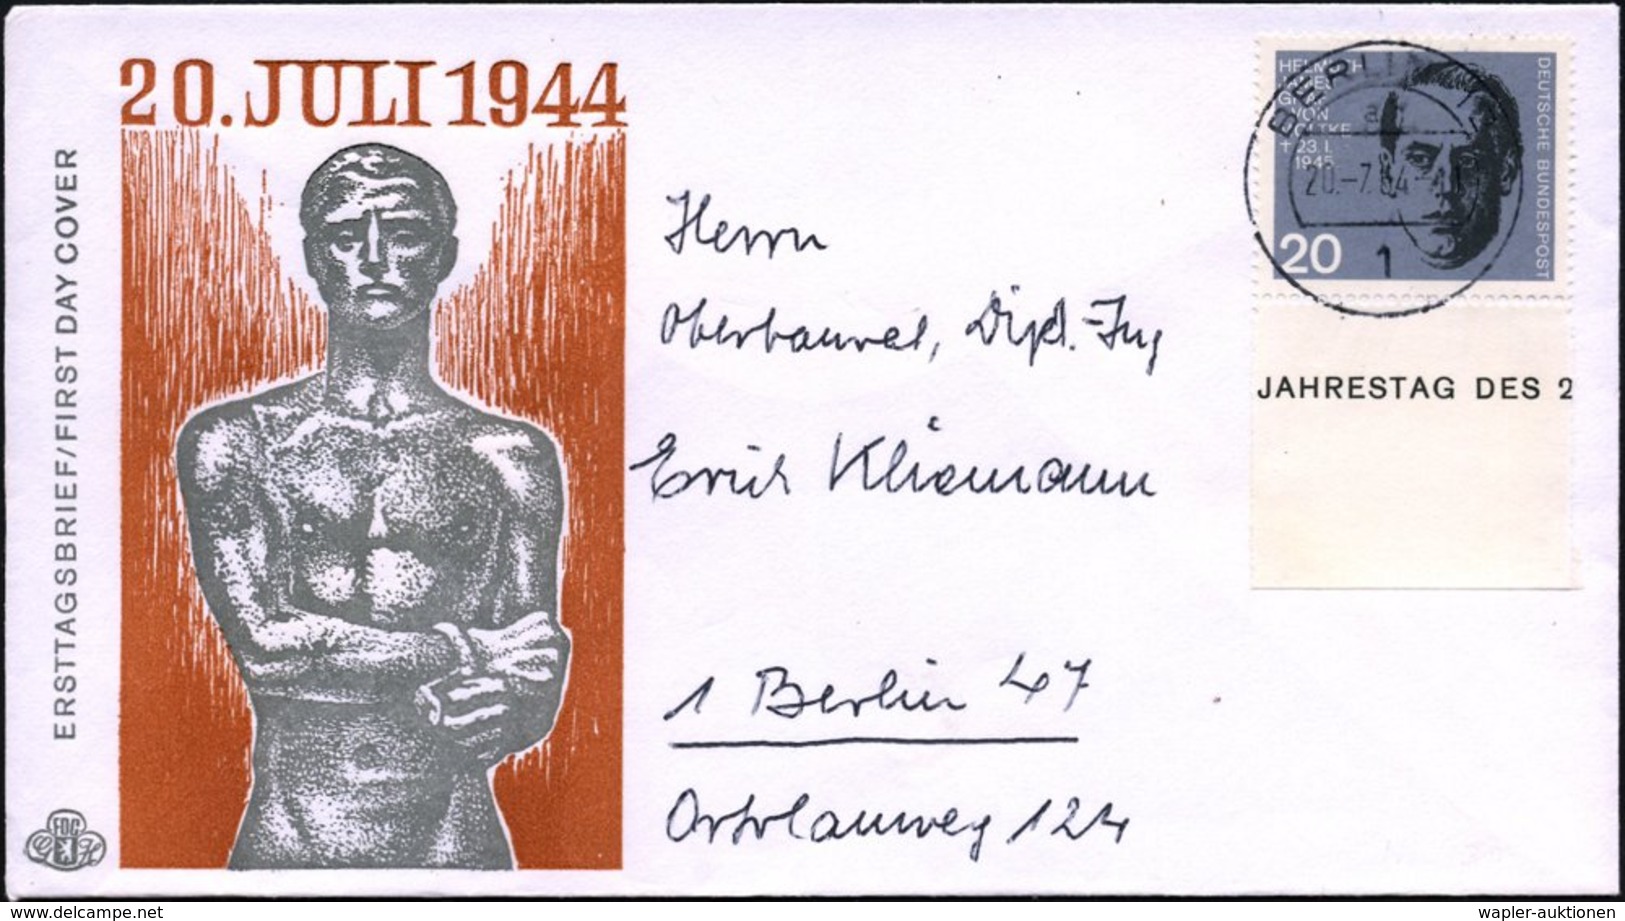 20. JULI 1944
ERSTTAGSBRIEF/FIRST DAY COVER
FDC
HELMUTH
JAMES
GRAF
VON
MOLTKE
+ 23.I.
1945
DEUTSCHE BUNDESPOST
20
BERLIN
20.-7.64
1
JAHRESTAG DES 2
Herrn
Oberbaurat, Dipl.-Ing
Erich Kliemann
1 Berlin 47
Ortolanweg 124
delcampe.net
wapler-auktionen